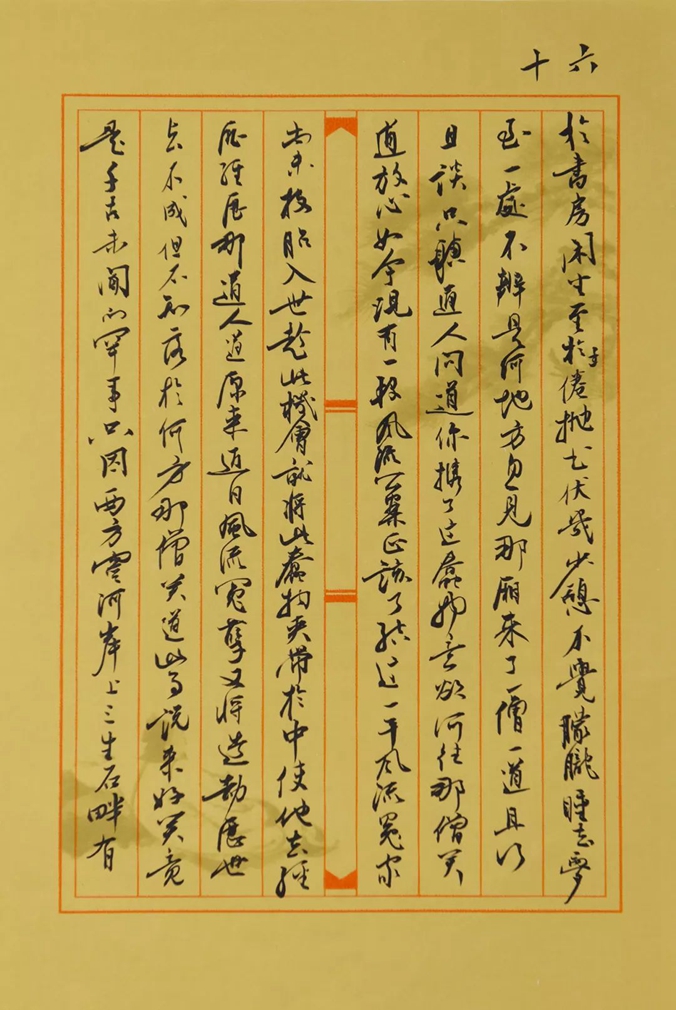 十六
於書房閑坐至於手倦抛書伏几少憩不覺朦朧睡去夢
至一處不辨是何地方忽見那廂来了一僧一道且行
且談只聽道人問道你携了這蠢物意欲何往那僧笑
道放心如今現有一段風流公案正該了结這一干風流冤家
尚未投胎入世趁此機會就將此蠢物夾帶於中使他去經
歷經歷那道人道原来近日風流冤孽又將造劫歷世
去不成但不知落於何方那僧笑道此事説来好笑竟
是千古未聞的罕事只因西方靈河岸上三生石畔有